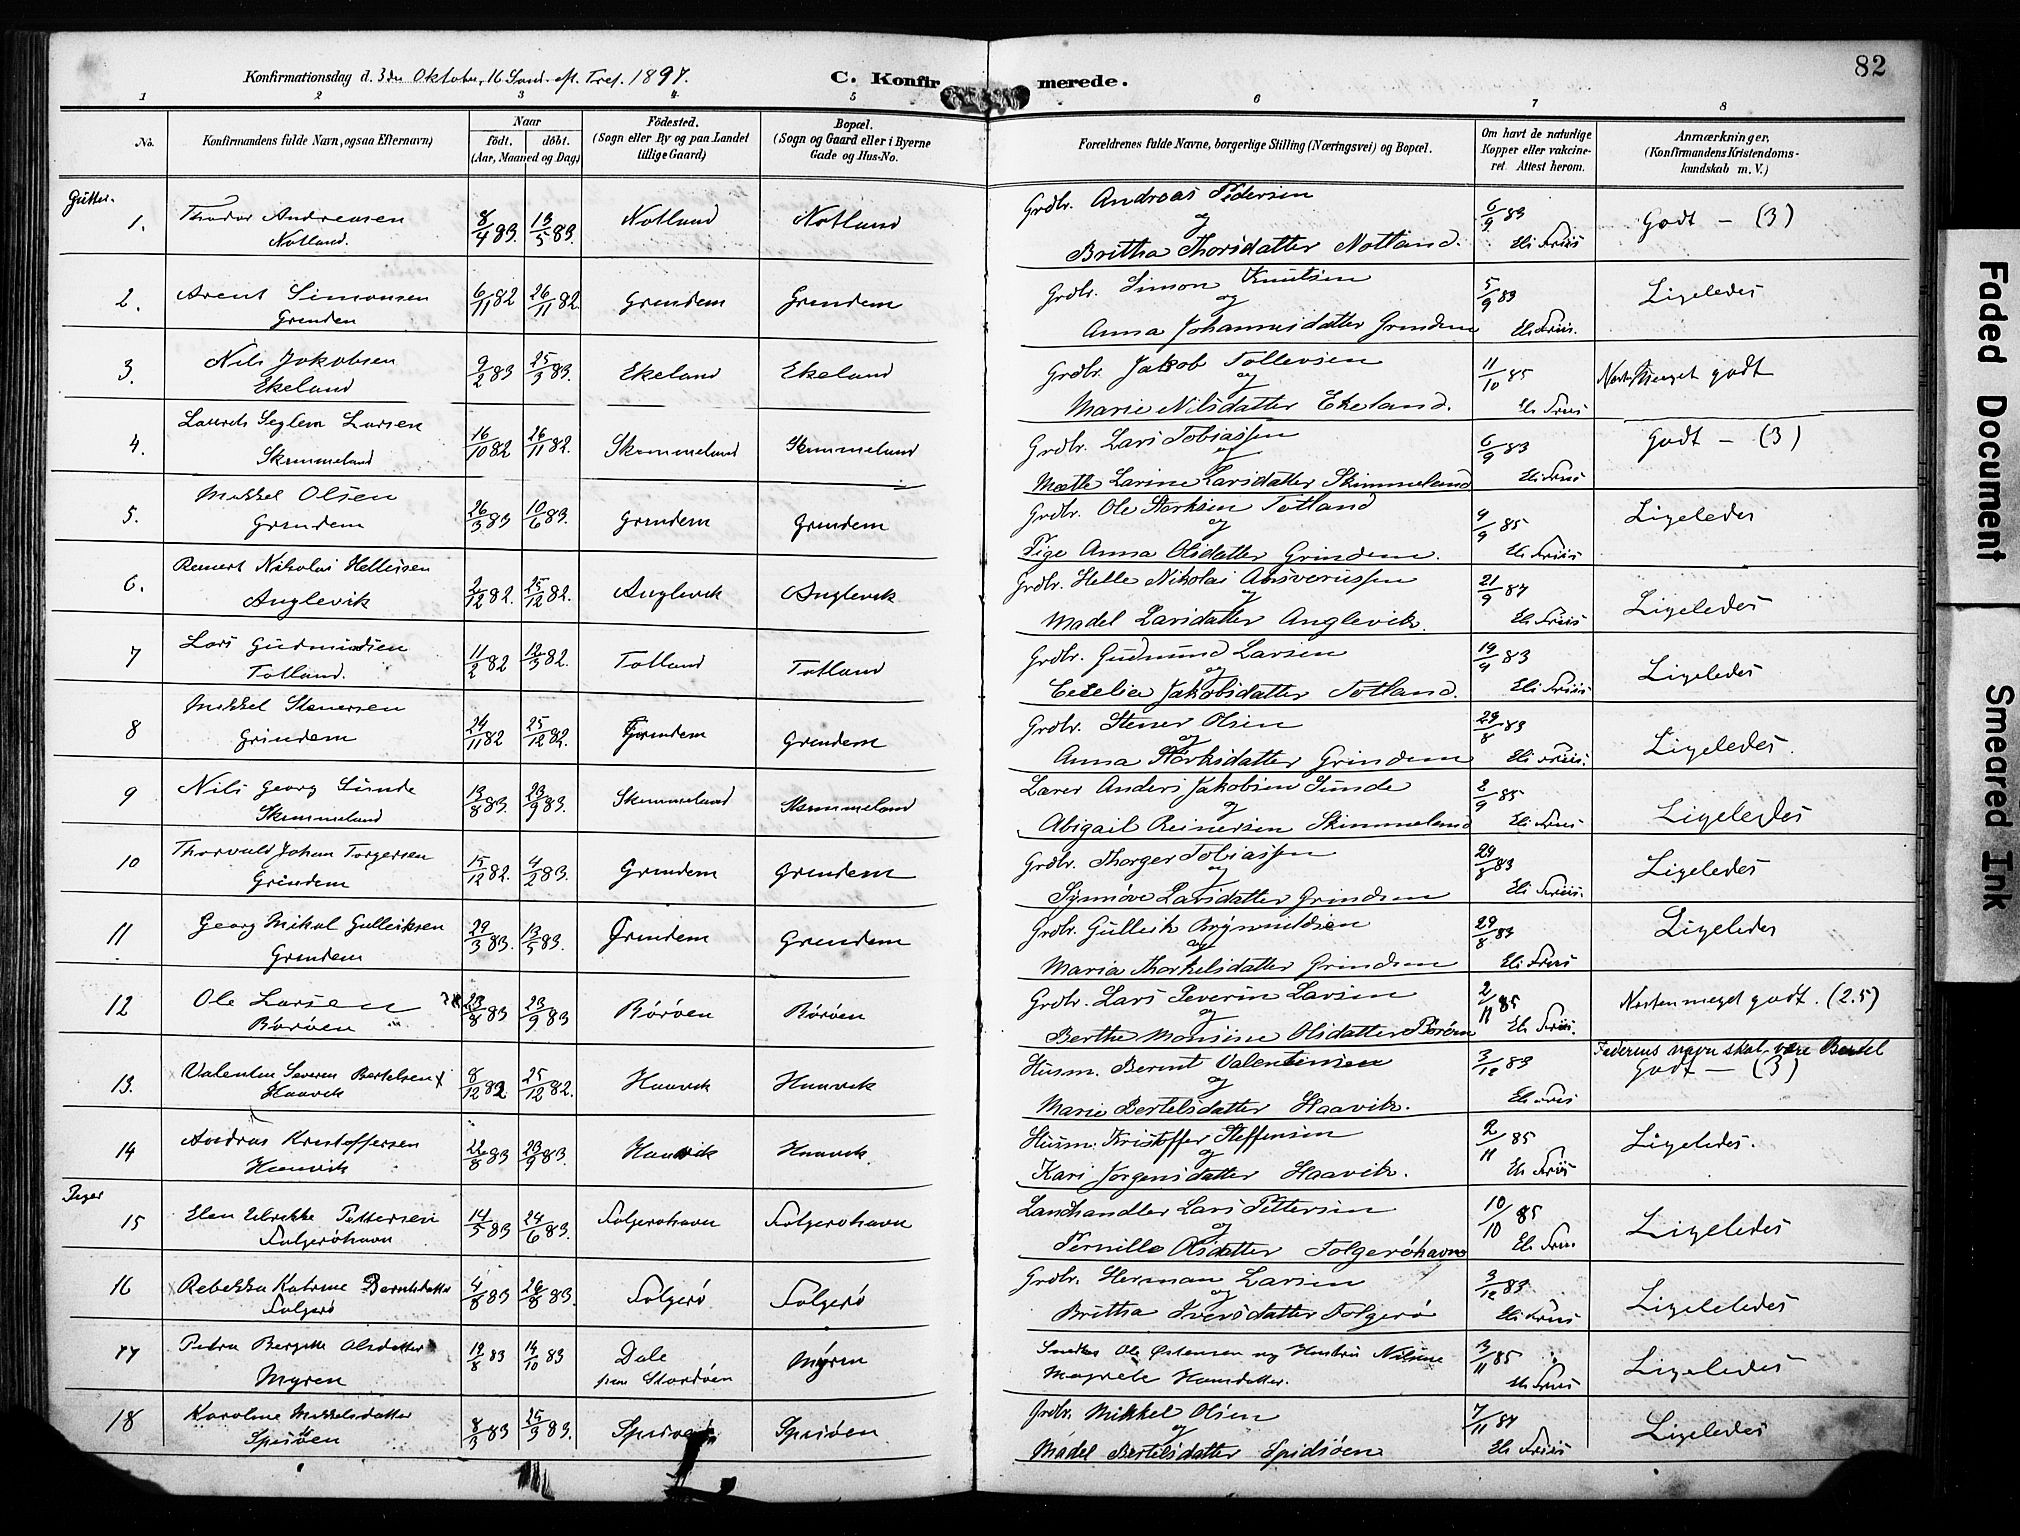 82
Konfirmationsdag d. 3die Oktober, 16 Sønd. eft. Tref. 1897.
C. Konfirmerede.
1 2 3 4 5 6 7 8
No.
Konfirmandens fulde Navn, ogsaa Efternavn)
Naar
født. døbt.
(Aar, Maaned og Dag)
Fødested.
(Sogn eller By og paa Landet
tillige Gaard)
Bopæl.
(Sogn og Gaard eller i Byerne
Gade og Hus-No.
Forældrenes fulde Navne, borgerlige Stilling (Næringsvei) og Bopæl.
Om havt de naturlige
Kopper eller vakcine-
ret. Attest herom.
Anmærkninger,
(Konfirmandens Kristendoms-
kundskab m. V.)
Gutter.
1. Thodor Andreasen Notland. 8/4 83. 13/5 83. Notland Notland
Grdbr. Andreas Pedersen og Brittha Thorsdatter Notland. 6/9 83 Eli Friis Godt — (3)
2. Arent Simonsen Grinden 6/11 82 26/11 82 Grindem Grindem
Grdbr. Simon Knutsen og Anna Johannesdatter Grindem 5/9 83 Eli Friis. Ligeledes
3. Nils Jakobsen Ekeland 9/2 83 25/3 83. Ekeland Ekeland
Grdbr. Jakob Tollevsen og Marie Nilsdatter Ekeland. 11/10 85 Eli Friis Næsten Meget godt
4. Laurits Seglem Larsen Skimmeland 16/10 82 26/11 82. Skimmeland Skimmeland
Grdbr. Lars Tobiassen og Mætte Larine Larsdatter Skimmeland 6/9 83 Eli Friis Godt — (3)
5. Mikkel Olsen Grindem 26/3 83 10/6 83. Grindem Grindem
Grdbr. Ole Storksen Totland og Pige Anna Olsdatter Grindem. 9/9 85 Eli Friis Ligeledes
6. Reinert Nikolai Hellesen Anglevik 2/12 82. 25/12 82. Anglevik Anglevik
Grdbr. Helle Nikolai Ansverussen og Madel Larsdatter Anglevik. 21/9 87 Eli Friis Ligeledes
7 Lars Gudmundsen Totland. 11/2 82 12/3 82. Totland Totland
Grdbr. Gudmund Larsen og Cecelia Jakobsdatter Totland. 19/9 83 Eli Friis Ligeledes
8 Mikkel Stenersen Grindem 24/11 82 25/12 82. Grindem Grindem
Grdbr. Stener Olsen og Anna Størksdatter Grindem 29/8 83 Eli Friis. Ligeledes.
9 Nils Georg Sunde Skimmeland 13/8 83. 23/9 83. Skimmeland Skimmeland
Lærer Anders Jakobsen Sunde og Abigail Reinersen Skimmeland 2/9 85 Eli Friis Ligeledes
10 Thorvald Johan Torgersen Grindem 15/12 82. 4/2 83. Grindem Grindem
Grdbr. Thorger Tobiassen og Synnøve Larsdatter Grindem 29/8 83 Eli Friis. Ligeledes
11 Georg Mikal Gulleiksen Grindem 29/3 83. 13/5 83. Grindem Grindem
Grdbr. Gulleik Brynnildsen og Maria Thorkelsdatter Grindem 29/8 83 Eli Friis Ligeledes
12 Ole Larsen Børøen 23/8 83 23/9 83 Børøen Børøen
Grdbr. Lars Severin Larsen og Berthe Monsine Olsdatter Børøen 2/11 85 Eli Friis. Næsten meget godt. (2.5)
13. Valentin Severin Bertelsen x Haavik 8/12 82 25/12 82. Haavik Haavik
Husm. Bernt Valentinsen og Marie Bertelsdatter Haavik. 3/12 83 Eli Friis Faderens navn skal være Bertel Godt — (3)
14 Andreas Kristoffersen Haavik 22/8 83 23/9 83. Haavik Haavik.
Husm. Kristoffer Steffensen og Kari Jørgensdatter Haavik. 2/11 85 Eli Friis Ligeledes.
Piger
15 Elen Ulrikke Pettersen Folgerøhavn 14/5 83 24/6 83. Folgerøhavn Folgerøhavn
Landhandler Lars Pettersen og Pernille Olsdatter Folgerøhavn 10/10 85 Eli Friis Ligeledes
16 Rebekka Katrine Berntsdatter Folgerø 4/8 83 26/8 83. Folgerø Folgerø
Grdbr. Herman Larsen og Brittha Iversdatter Folgerø 3/12 83 Eli Friis Ligeledes
17 Petra Bergitte Olsdatter Myren 19/8 83 14/10 83 Dale paa Stordøen Myren
Snedker Ole Østensen og Hustru Nilsine Magrete Hansdatter. 3/11 85 Eli Friis Ligeledes
18 Karoline Mikkelsdatter Spisøen 8/3 83 25/3 83. Spisøen Spisøen
Grdbr. Mikkel Olsen og Madel Bertelsdatter Spidsøen 7/11 87 Eli Friis Ligeledes
Faded Document
Smeared Ink